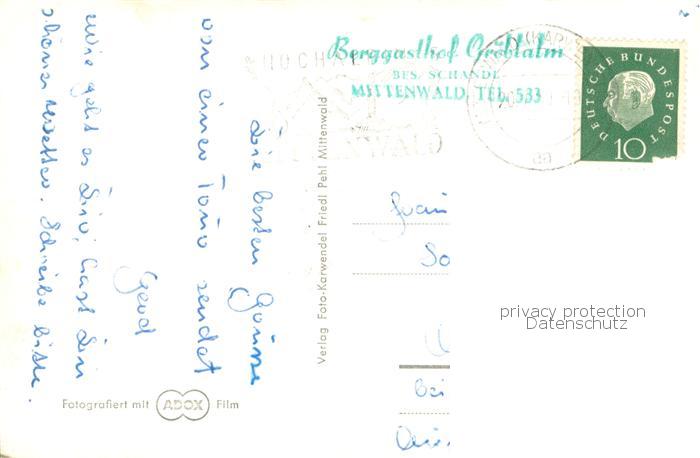 Die besten Grüsse
von einer Tour sendet
Gerd
Wie geht es Dir, hast Du
schönes Wetter. Schreibe bitte.
Fotografiert mit ADOX Film
Verlag Foto-Karwendel Friedl Pehl Mittenwald
Berggasthof Gröblalm
BES. SCHANDL
MITTENWALD, TEL. 533
DEUTSCHE BUNDESPOST
10
aa
privacy protection
Datenschutz
Bei